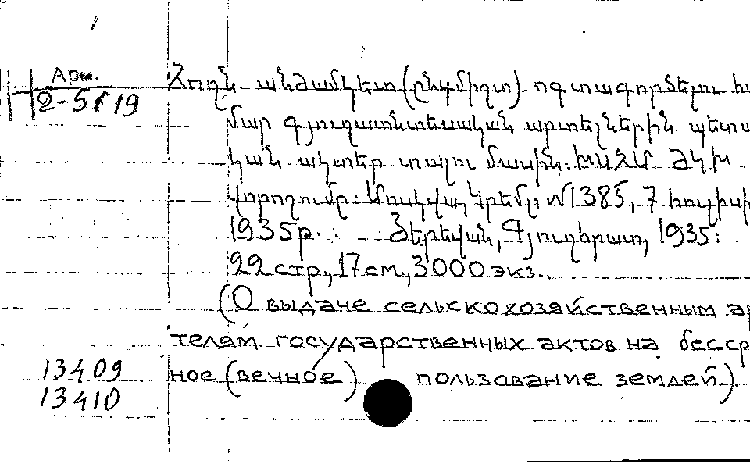 Арм.
2-5119
Հողն անժամկետ (ընդմիշտ) ոգտագործելու հա
մար գյուղատնտեսական արտելներին պետա
կան ակտեր տալու մասին: ԽՍՀՄ ԺԿԽ
վորոշումը: Մոսկվա, Կրեմլ, № 1385, 7 հուլիսի
1935թ. Յերեվան, Գյուղհրատ, 1935:
22 стр., 17 см., 3000 экз.
(О выдаче сельскохозяйственным ар
телям государственных актов на бесср
ное (вечное) пользование землей).
13409
13410